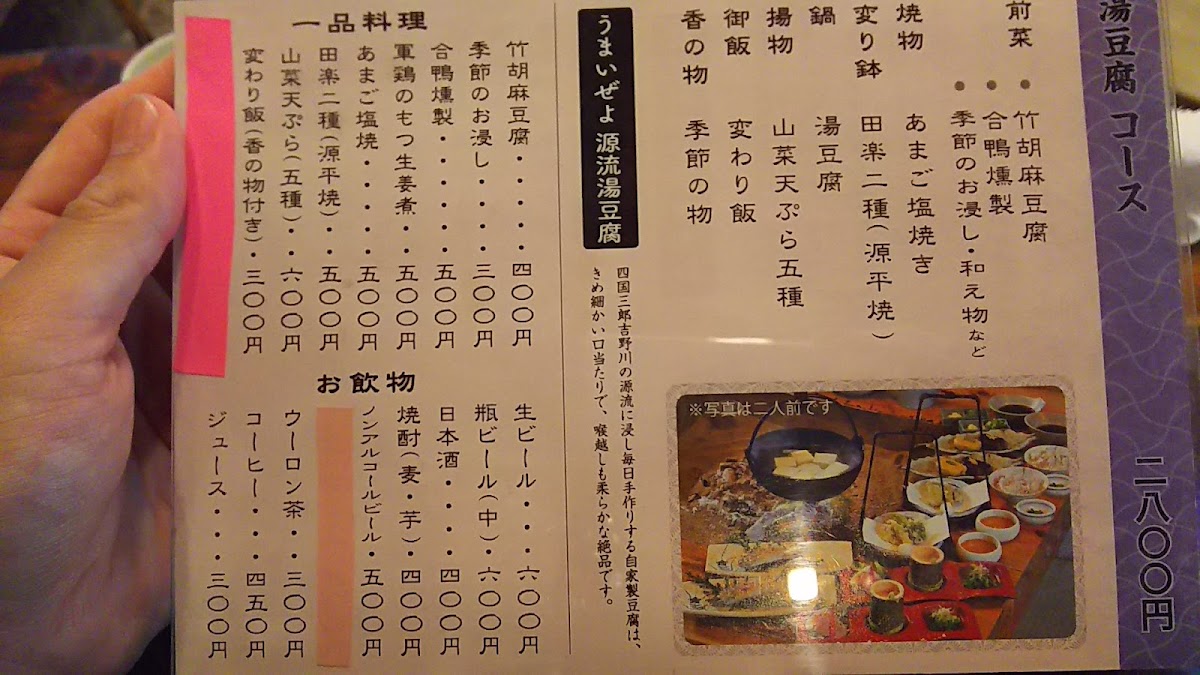 湯豆腐 コース 二八〇〇円
前菜
・竹胡麻豆腐
・合鴨燻製
・季節のお浸し・和え物など
焼物 あまご塩焼き
変り鉢 田楽二種(源平焼)
鍋 湯豆腐
揚物 山菜天ぷら五種
御飯 変わり飯
香の物 季節の物
※写真は二人前です
うまいぜよ 源流湯豆腐
四国三郎吉野川の源流に浸し毎日手作りする自家製豆腐は、
きめ細かい口当たりで、喉越しも柔らかな絶品です。
一品料理
竹胡麻豆腐・・・・・四〇〇円
季節のお浸し・・・・三〇〇円
合鴨燻製・・・・・・五〇〇円
軍鶏のもつ生姜煮・・五〇〇円
あまご塩焼・・・・・五〇〇円
田楽二種(源平焼)・・五〇〇円
山菜天ぷら(五種)・・六〇〇円
変わり飯(香の物付き)・三〇〇円
お飲物
生ビール・・・六〇〇円
瓶ビール(中)・六〇〇円
日本酒・・・・四〇〇円
焼酎(麦・芋)・四〇〇円
ノンアルコールビール・五〇〇円
ウーロン茶・・三〇〇円
コーヒー・・・四五〇円
ジュース・・・三〇〇円